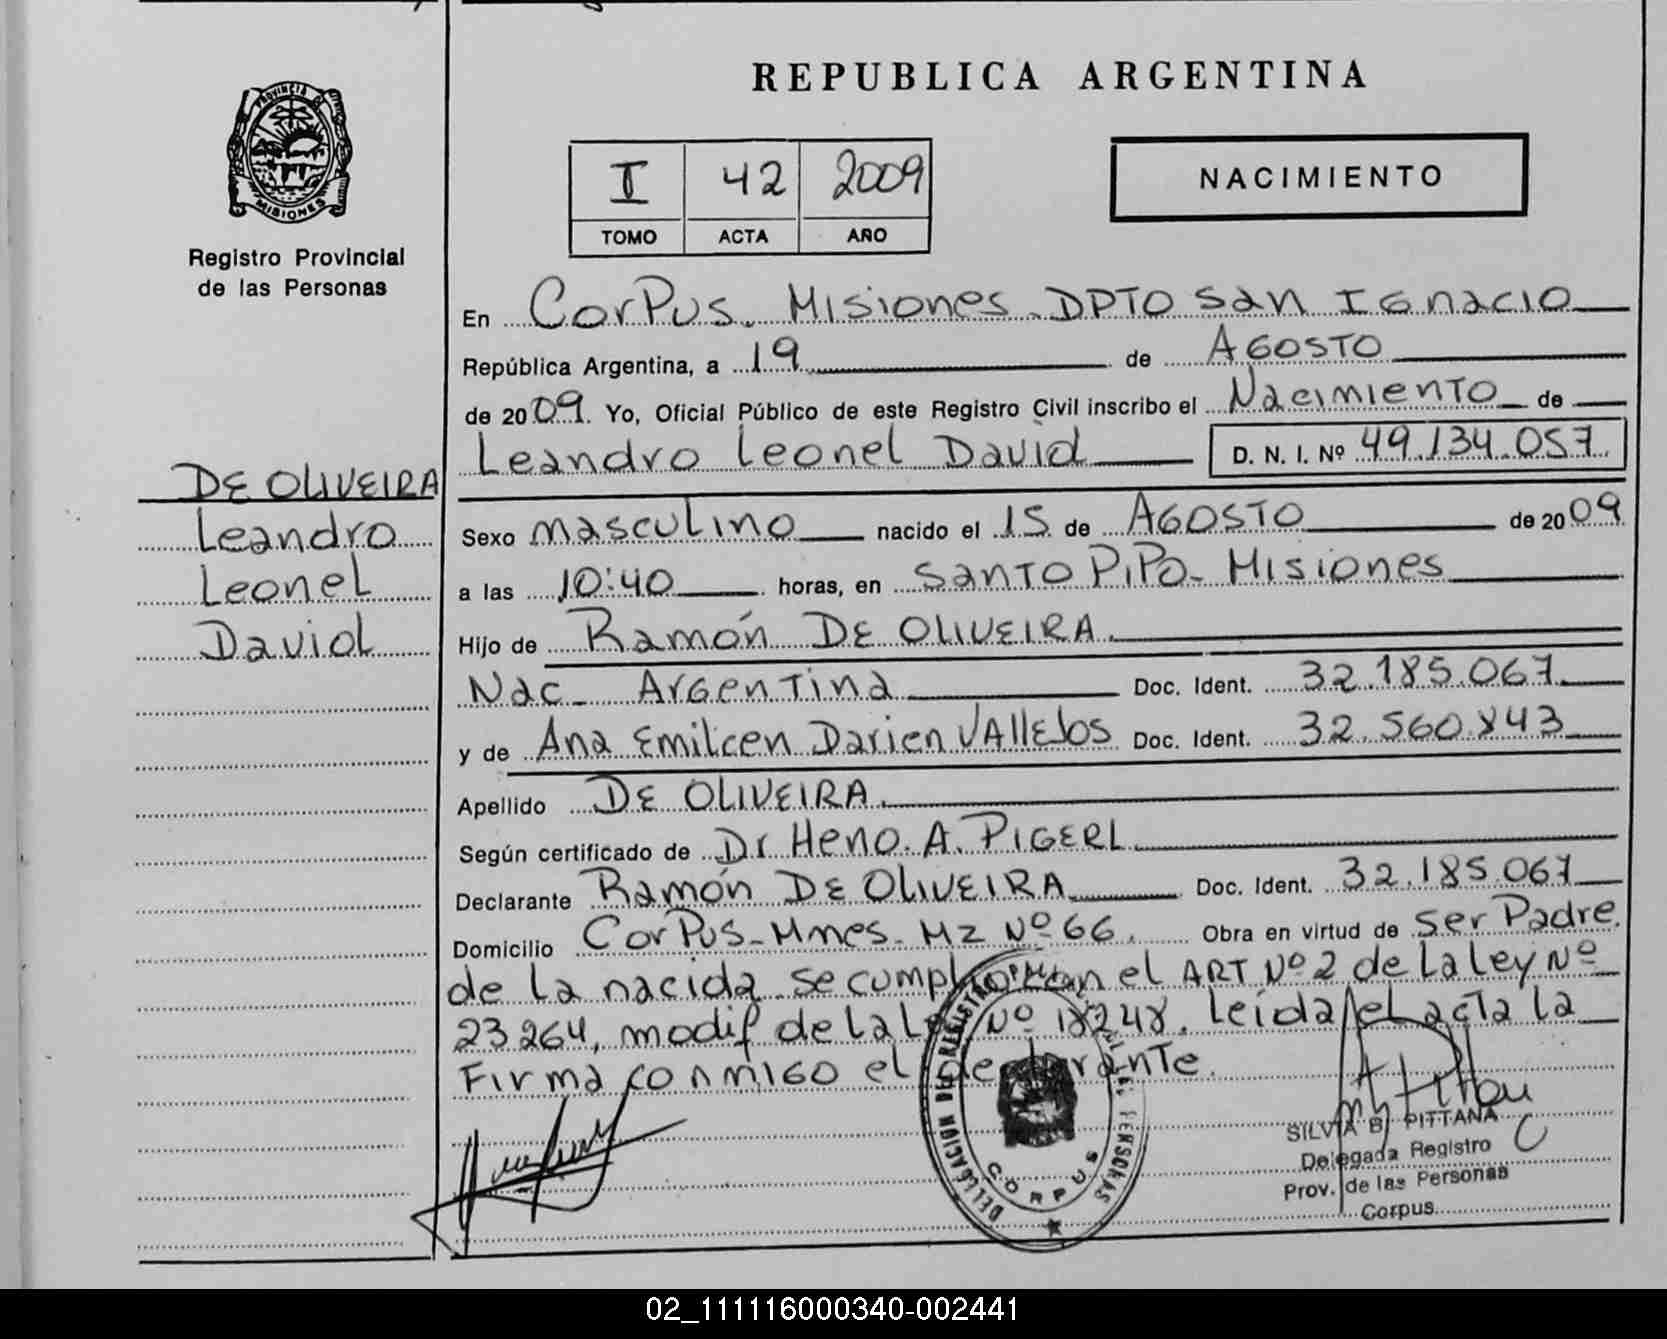 REPUBLICA ARGENTINA
PROVINCIA DE
MISIONES
Registro Provincial
de las Personas
I 42 2009
TOMO ACTA AÑO
NACIMIENTO
En CorPus. Misiones. DPTO San Ignacio
República Argentina, a 19 de AGOSTO
de 2009. Yo, Oficial Público de este Registro Civil inscribo el Nacimiento de
Leandro Leonel David D. N. I. Nº 49.134.057.
DE OLIVEIRA
Leandro
Leonel
David
Sexo masculino nacido el 15 de AGOSTO de 2009
a las 10:40 horas, en SANTO PiPo- Misiones
Hijo de Ramón DE OLIVEIRA.
Nac_ Argentina Doc. Ident. 32.185.067
y de Ana Emilcen Darien VAllEJos Doc. Ident. 32.560.843
Apellido DE OLIVEIRA.
Según certificado de Dr Heno. A. PIGERL
Declarante Ramón DE OLIVEIRA Doc. Ident. 32.185.067
Domicilio CorPus-Mnes- Mz Nº 66. Obra en virtud de ser Padre.
de la nacida se con el ART Nº 2 de la ley Nº
23264, modif de la Nº 18248. Leída el acta la
Firma conmigo el declarante.
DELEGACION DE REGISTRO PERSONAS
CORPUS
SILVIA B. PITTANA
Delegada Registro
Prov. de las Personas
Corpus
02_111116000340-002441